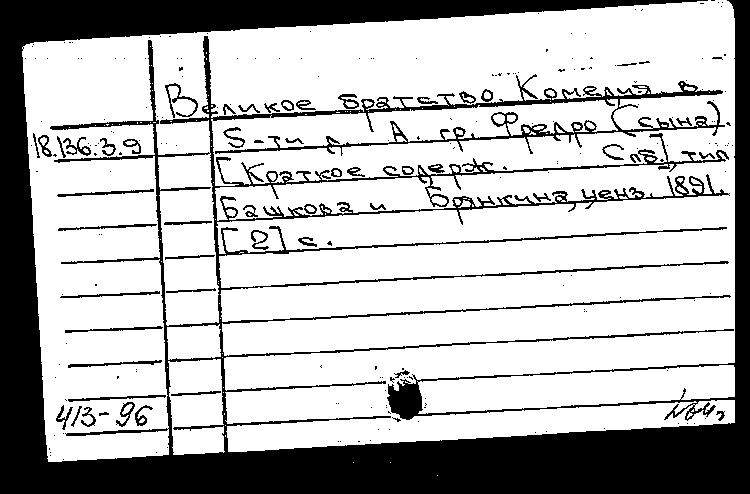 Великое братство. Комедия в
18.136.3.9
5-ти д. А. гр. Фредро (сына).
[Краткое содерж. Спб.], тип
Башкова и Брянкина, ценз. 1891.
[2] с.
413-96